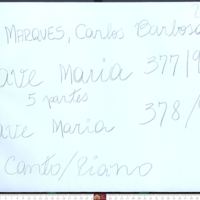 MARQUES, Carlos Barbosa
ave Maria 377/9
5 partes
ave Maria 378/
Canto/Piano